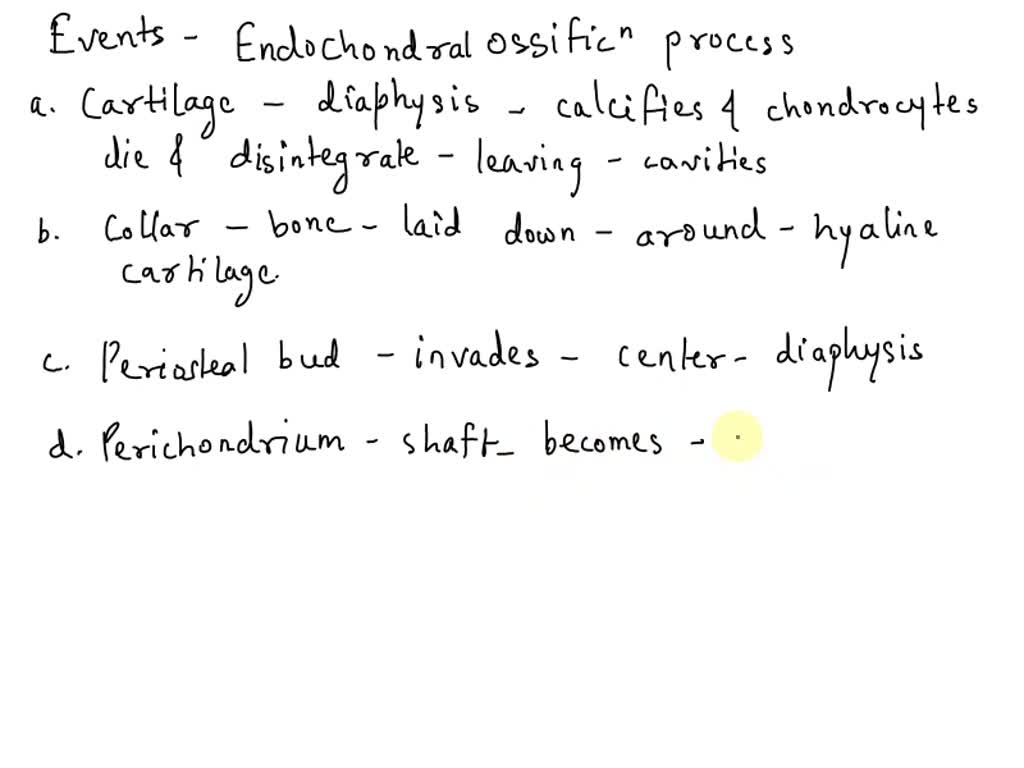 Events - Endochondral ossificⁿ process
a. Cartilage - diaphysis - calcifies & chondrocytes
die & disintegrate - leaving - cavities
b. Collar - bone - laid down - around - hyaline
cartilage.
c. Periosteal bud - invades - center - diaphysis
d. Perichondrium - shaft - becomes -